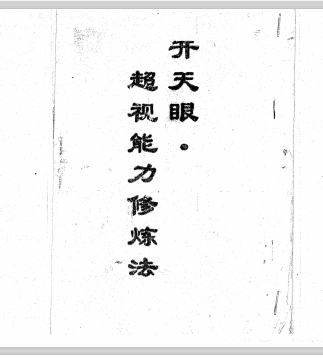 开天眼·
超视能力修炼法